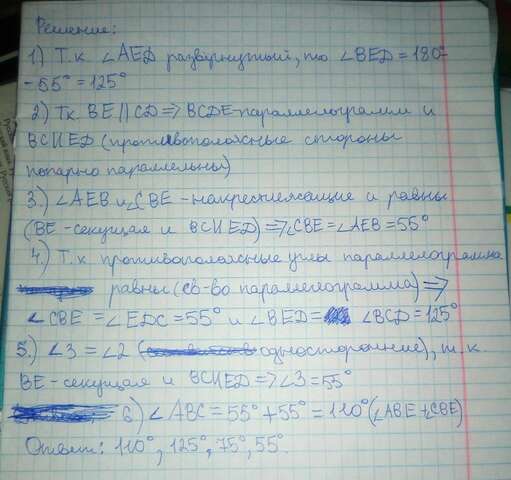 Решение:
1) Т.к. ∠AED развернутый, то ∠BED = 180°
- 55° = 125°
2) Тк. BE || CD => BCDE-параллелограмм и
BC||ED (противоположные стороны
попарно параллельны)
3.) ∠AEB и ∠CBE - накрестлежащие и равны
(BE-секущая и BC||ED) => ∠CBE = ∠AEB = 55°
4) Т.к. противоположные углы параллелограмма
равны (св-во параллелограмма) =>
∠CBE = ∠EDC = 55° и ∠BED = ∠BCD = 125°
5.) ∠3 = ∠2 (односторонние), т.к.
BE - секущая и BC||ED => ∠3 = 55°
6) ∠ABC = 55° + 55° = 110° (∠ABE + ∠CBE)
Ответ: 110°, 125°, 75°, 55°.